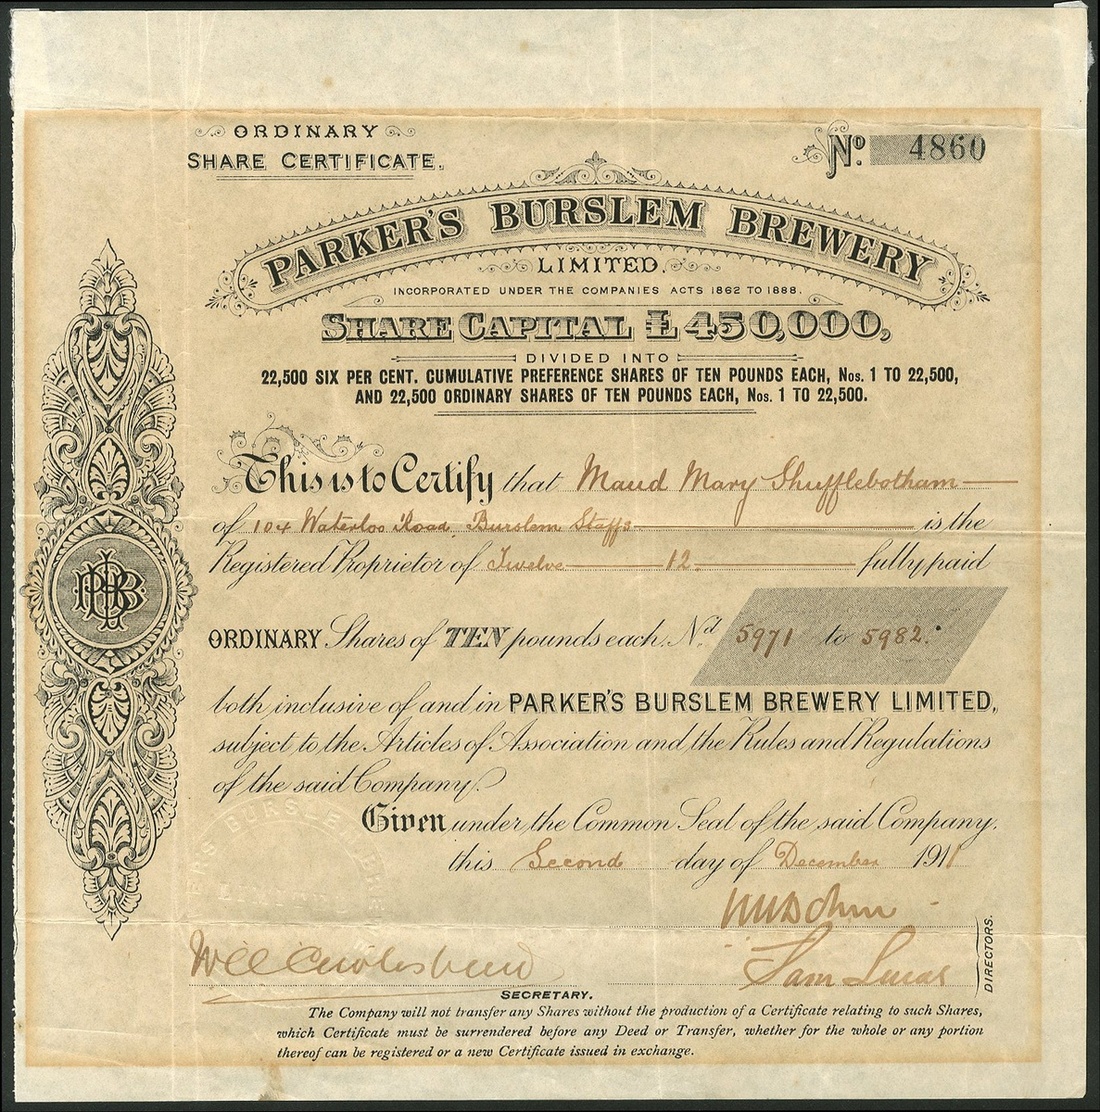 ORDINARY
SHARE CERTIFICATE.
No. 4860
PARKER'S BURSLEM BREWERY
LIMITED.
INCORPORATED UNDER THE COMPANIES ACTS 1862 TO 1888.
SHARE CAPITAL £450,000,
DIVIDED INTO
22,500 SIX PER CENT. CUMULATIVE PREFERENCE SHARES OF TEN POUNDS EACH, Nos. 1 TO 22,500,
AND 22,500 ORDINARY SHARES OF TEN POUNDS EACH, Nos. 1 TO 22,500.
This is to Certify that Maud Mary Shufflebotham
of 104 Waterloo Road, Burslem Staffs is the
Registered Proprietor of Twelve 12 fully paid
ORDINARY Shares of TEN pounds each. Nd. 5971 to 5982.
both inclusive of and in PARKER'S BURSLEM BREWERY LIMITED,
subject to the Articles of Association and the Rules and Regulations
of the said Company.
Given under the Common Seal of the said Company.
this Second day of December 1911
BURSLEM
LIMITED
Sam Lucas
DIRECTORS.
SECRETARY.
The Company will not transfer any Shares without the production of a Certificate relating to such Shares,
which Certificate must be surrendered before any Deed or Transfer, whether for the whole or any portion
thereof can be registered or a new Certificate issued in exchange.